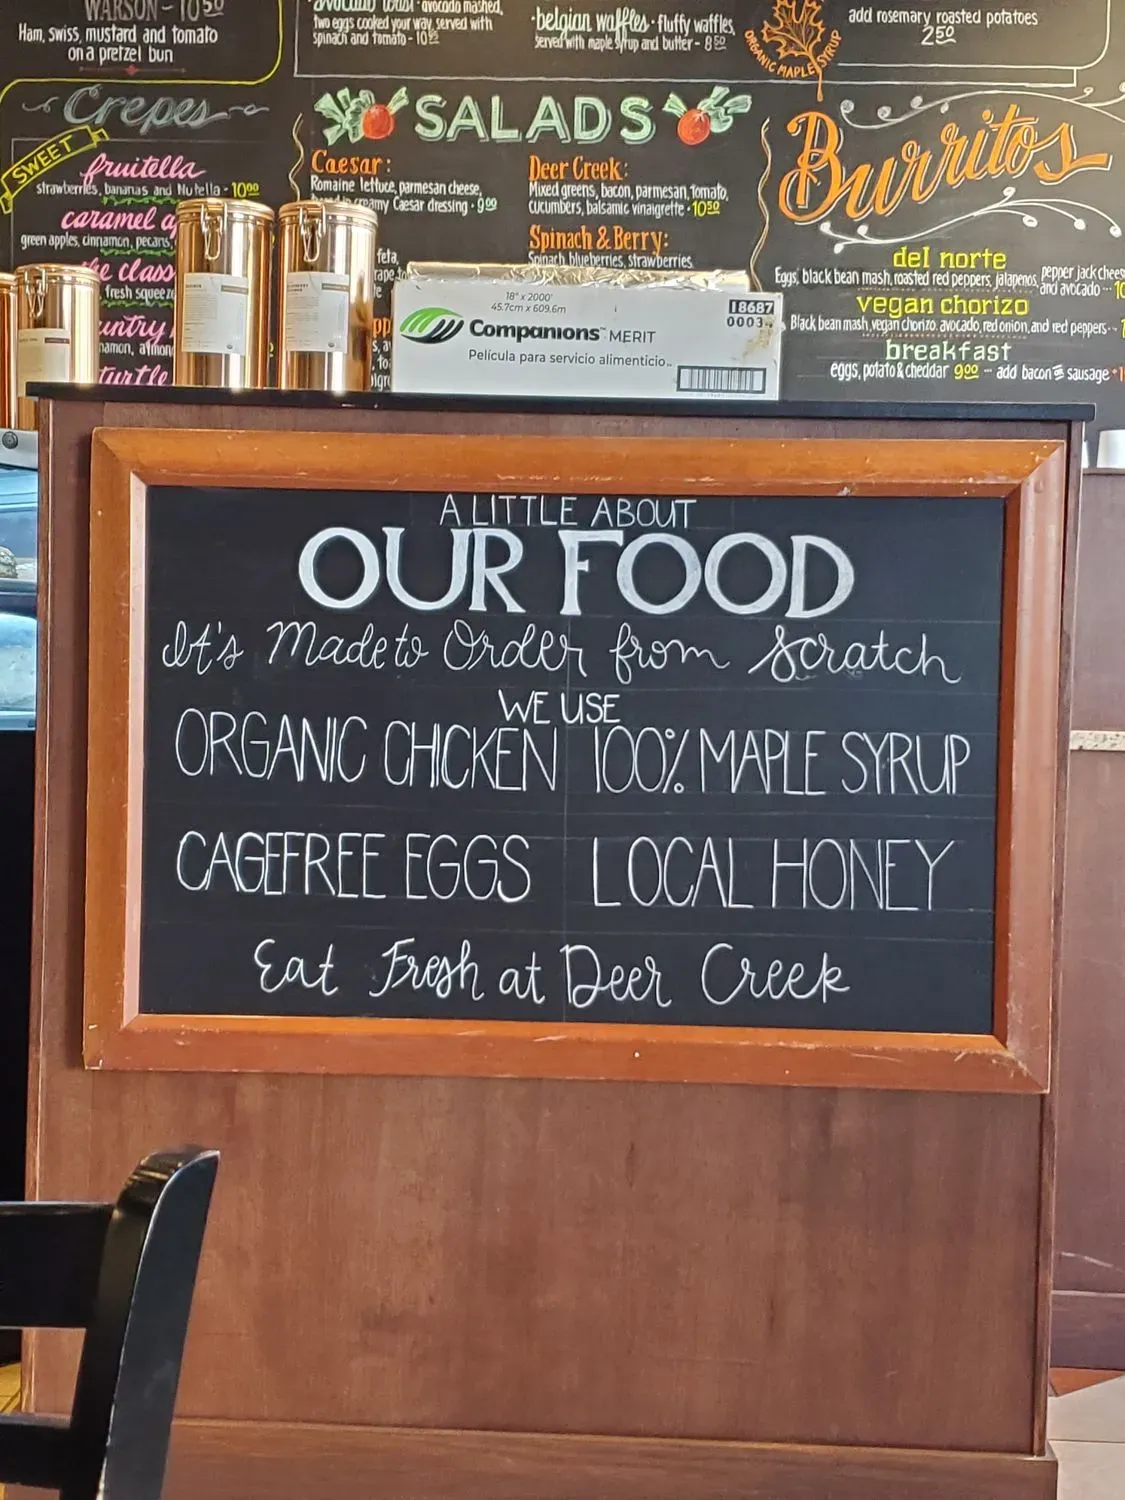 WARSON - 10⁵⁰
Ham, swiss, mustard and tomato
on a pretzel bun
avocado toast · avocado mashed,
two eggs cooked your way, served with
spinach and tomato -
· belgian waffles · fluffy waffles,
served with maple syrup and butter - 8⁵⁰
ORGANIC MAPLE SYRUP
add rosemary roasted potatoes
2⁵⁰
Crepes
SWEET
fruitella
strawberries, bananas and Nutella - 10⁰⁰
caramel
green apples, cinnamon, pecans,
the
fresh
turtle
SALADS
Caesar:
Romaine lettuce, parmesan cheese,
creamy Caesar dressing · 9⁰⁰
feta,
Deer Creek:
Mixed greens, bacon, parmesan, tomato,
cucumbers, balsamic vinaigrette · 10⁵⁰
Spinach & Berry:
Spinach, blueberries, strawberries,
Burritos
del norte
Eggs, black bean mash, roasted red peppers, jalapenos, pepper jack
and avocado
vegan chorizo
Black bean mash, vegan chorizo, avocado, red onion, and red peppers
breakfast
eggs, potato & cheddar 9⁰⁰ -- add bacon or sausage
18" x 2000'
45.7cm x 609.6m
18687
0003
Companions™ MERIT
Película para servicio alimenticio
A LITTLE ABOUT
OUR FOOD
It's Made to Order from Scratch
WE USE
ORGANIC CHICKEN 100% MAPLE SYRUP
CAGEFREE EGGS LOCAL HONEY
Eat Fresh at Deer Creek